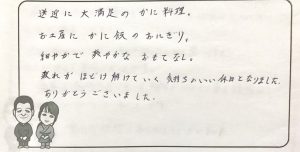 送迎に大満足のかに料理。
お土産にかに飯のおにぎり。
細やかで爽やかなおもてなし。
疲れがほどけ解けていく気持ちのいい休日となりました。
ありがとうございました。